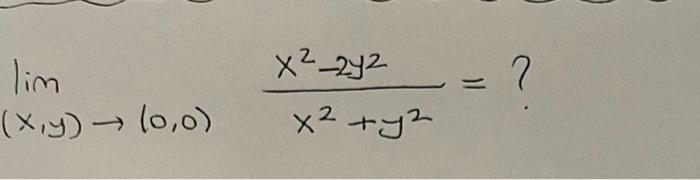 lim (x,y) → (0,0) x²-2y² / x²+y² = ?